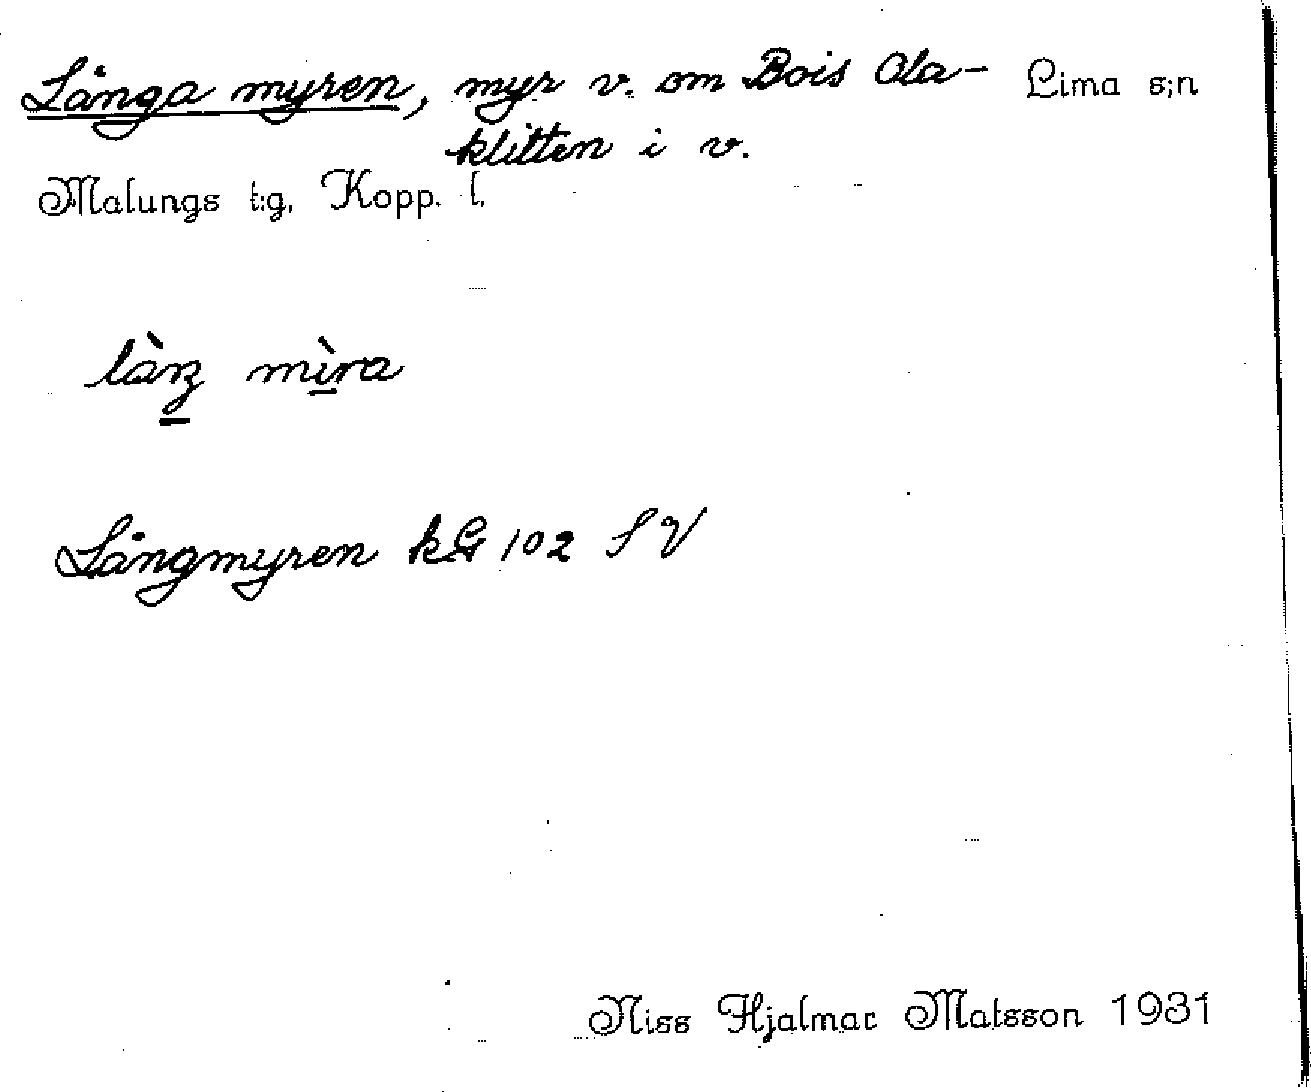 Långa myren, myr v. om Bois Ola- Lima s;n
klitten i v.
Malungs t:g, Kopp. l.
làŋ mìra
Långmyren kG 102 SV
Niss Hjalmar Matsson 1931